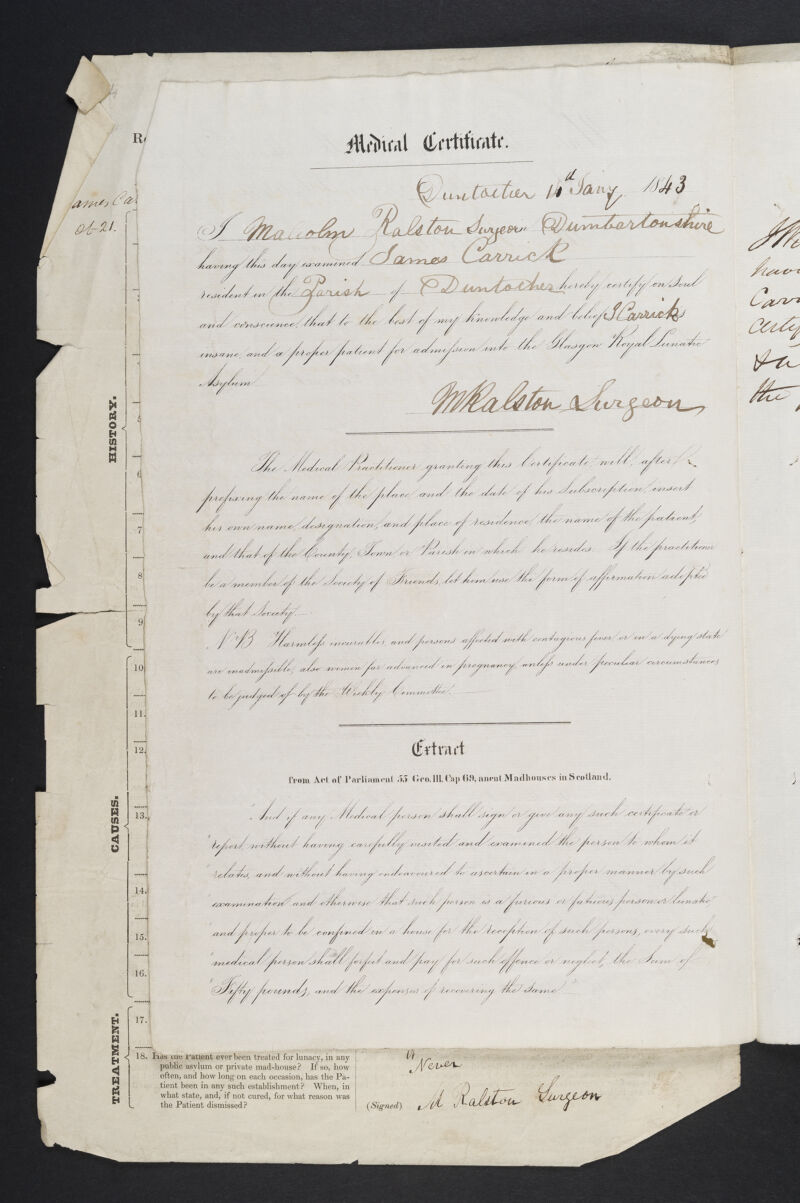 Medical Certificate.
Duntocher 11th Jany. 1843
I Malcolm Ralston Surgeon Dumbartonshire
having this day examined James Carrick
resident in the Parish of Duntocher hereby certify on Soul
and conscience, that to the best of my knowledge and belief J Carrick
insane, and a proper patient for admission into the Glasgow Royal Lunatic
Asylum
MRalston Surgeon
The Medical Practitioner granting this Certificate will, after
prefixing the name of the place and the date of his Subscription, insert
his own name, designation, and place of residence, the name of the patient,
and that of the County, Town or Parish in which he resides. If the practitioner
be a member of the Society of Friends, let him use the form of affirmation adopted
by that Society
N.B. Harmless incurables, and persons affected with contagious fever, or in a dying state
are inadmissible, also women far advanced in pregnancy, unless under peculiar circumstances
to be judged of by the Weekly Committee.
Extract
from Act of Parliament 55 Geo. III. Cap 69, anent Madhouses in Scotland.
"And if any Medical person shall sign or give any such certificate or
"report without having carefully visited and examined the person to whom it
"relates, and without having endeavoured to ascertain in a proper manner by such
"examination and otherwise that such person is a furious or fatuous person or lunatic
"and proper to be confined in a house for the reception of such persons, every such
"medical person shall forfeit and pay for such offence or neglect, the Sum of
"Fifty pounds, and the expenses of recovering the Same
HISTORY.
CAUSES.
TREATMENT.
6
7
8
9
10
11.
12.
13.
14.
15.
16.
17.
18. Has the Patient ever been treated for lunacy, in any
public asylum or private mad-house? If so, how
often, and how long on each occasion, has the Pa-
tient been in any such establishment? When, in
what state, and, if not cured, for what reason was
the Patient dismissed?
Never
(Signed) M Ralston Surgeon
the